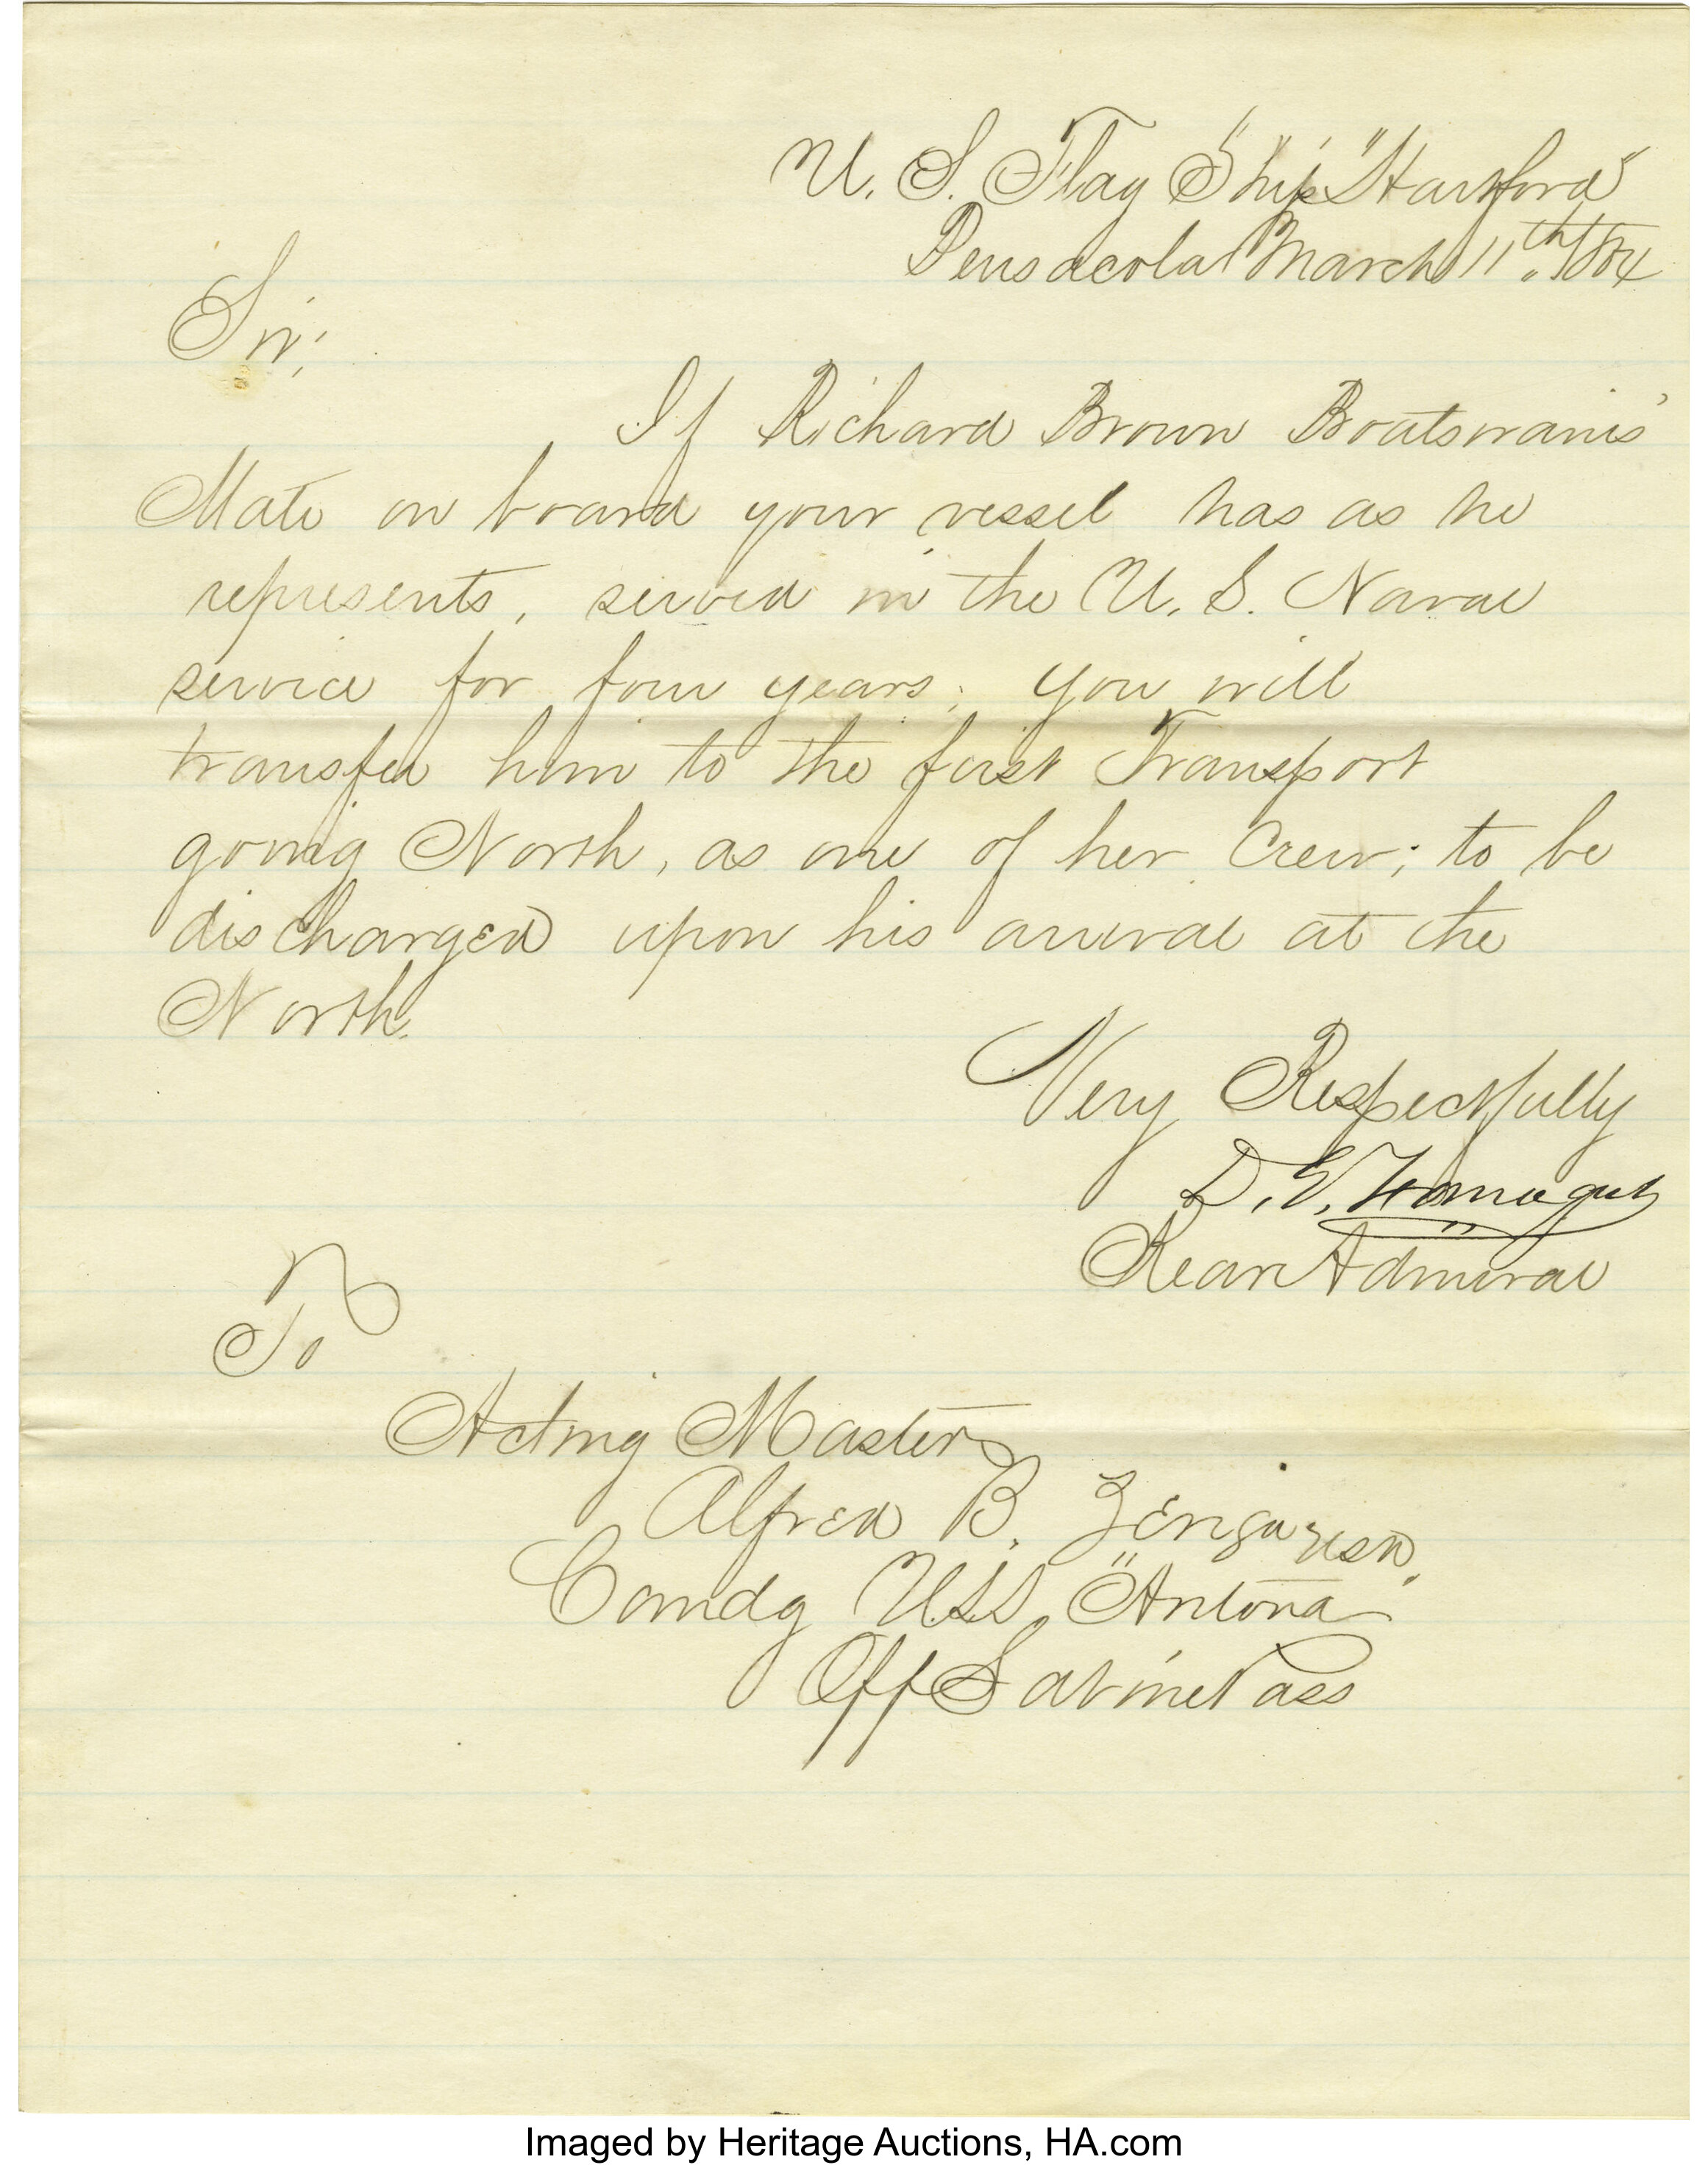 U. S. Flag Ship "Hartford"
Pensacola March 11th, 1864
Sir;
If Richard Brown Boatswain's
Mate on board your vessel has as he
represents, served in the U. S. Naval
service for four years; you will
transfer him to the first Transport
going North, as one of her Crew; to be
discharged upon his arrival at the
North.
Very Respectfully
D. G. Farragut
Rear Admiral
To
Acting Master
Alfred B.
Comdg USS, "Antona
Off Sabine Pass
Imaged by Heritage Auctions, HA.com